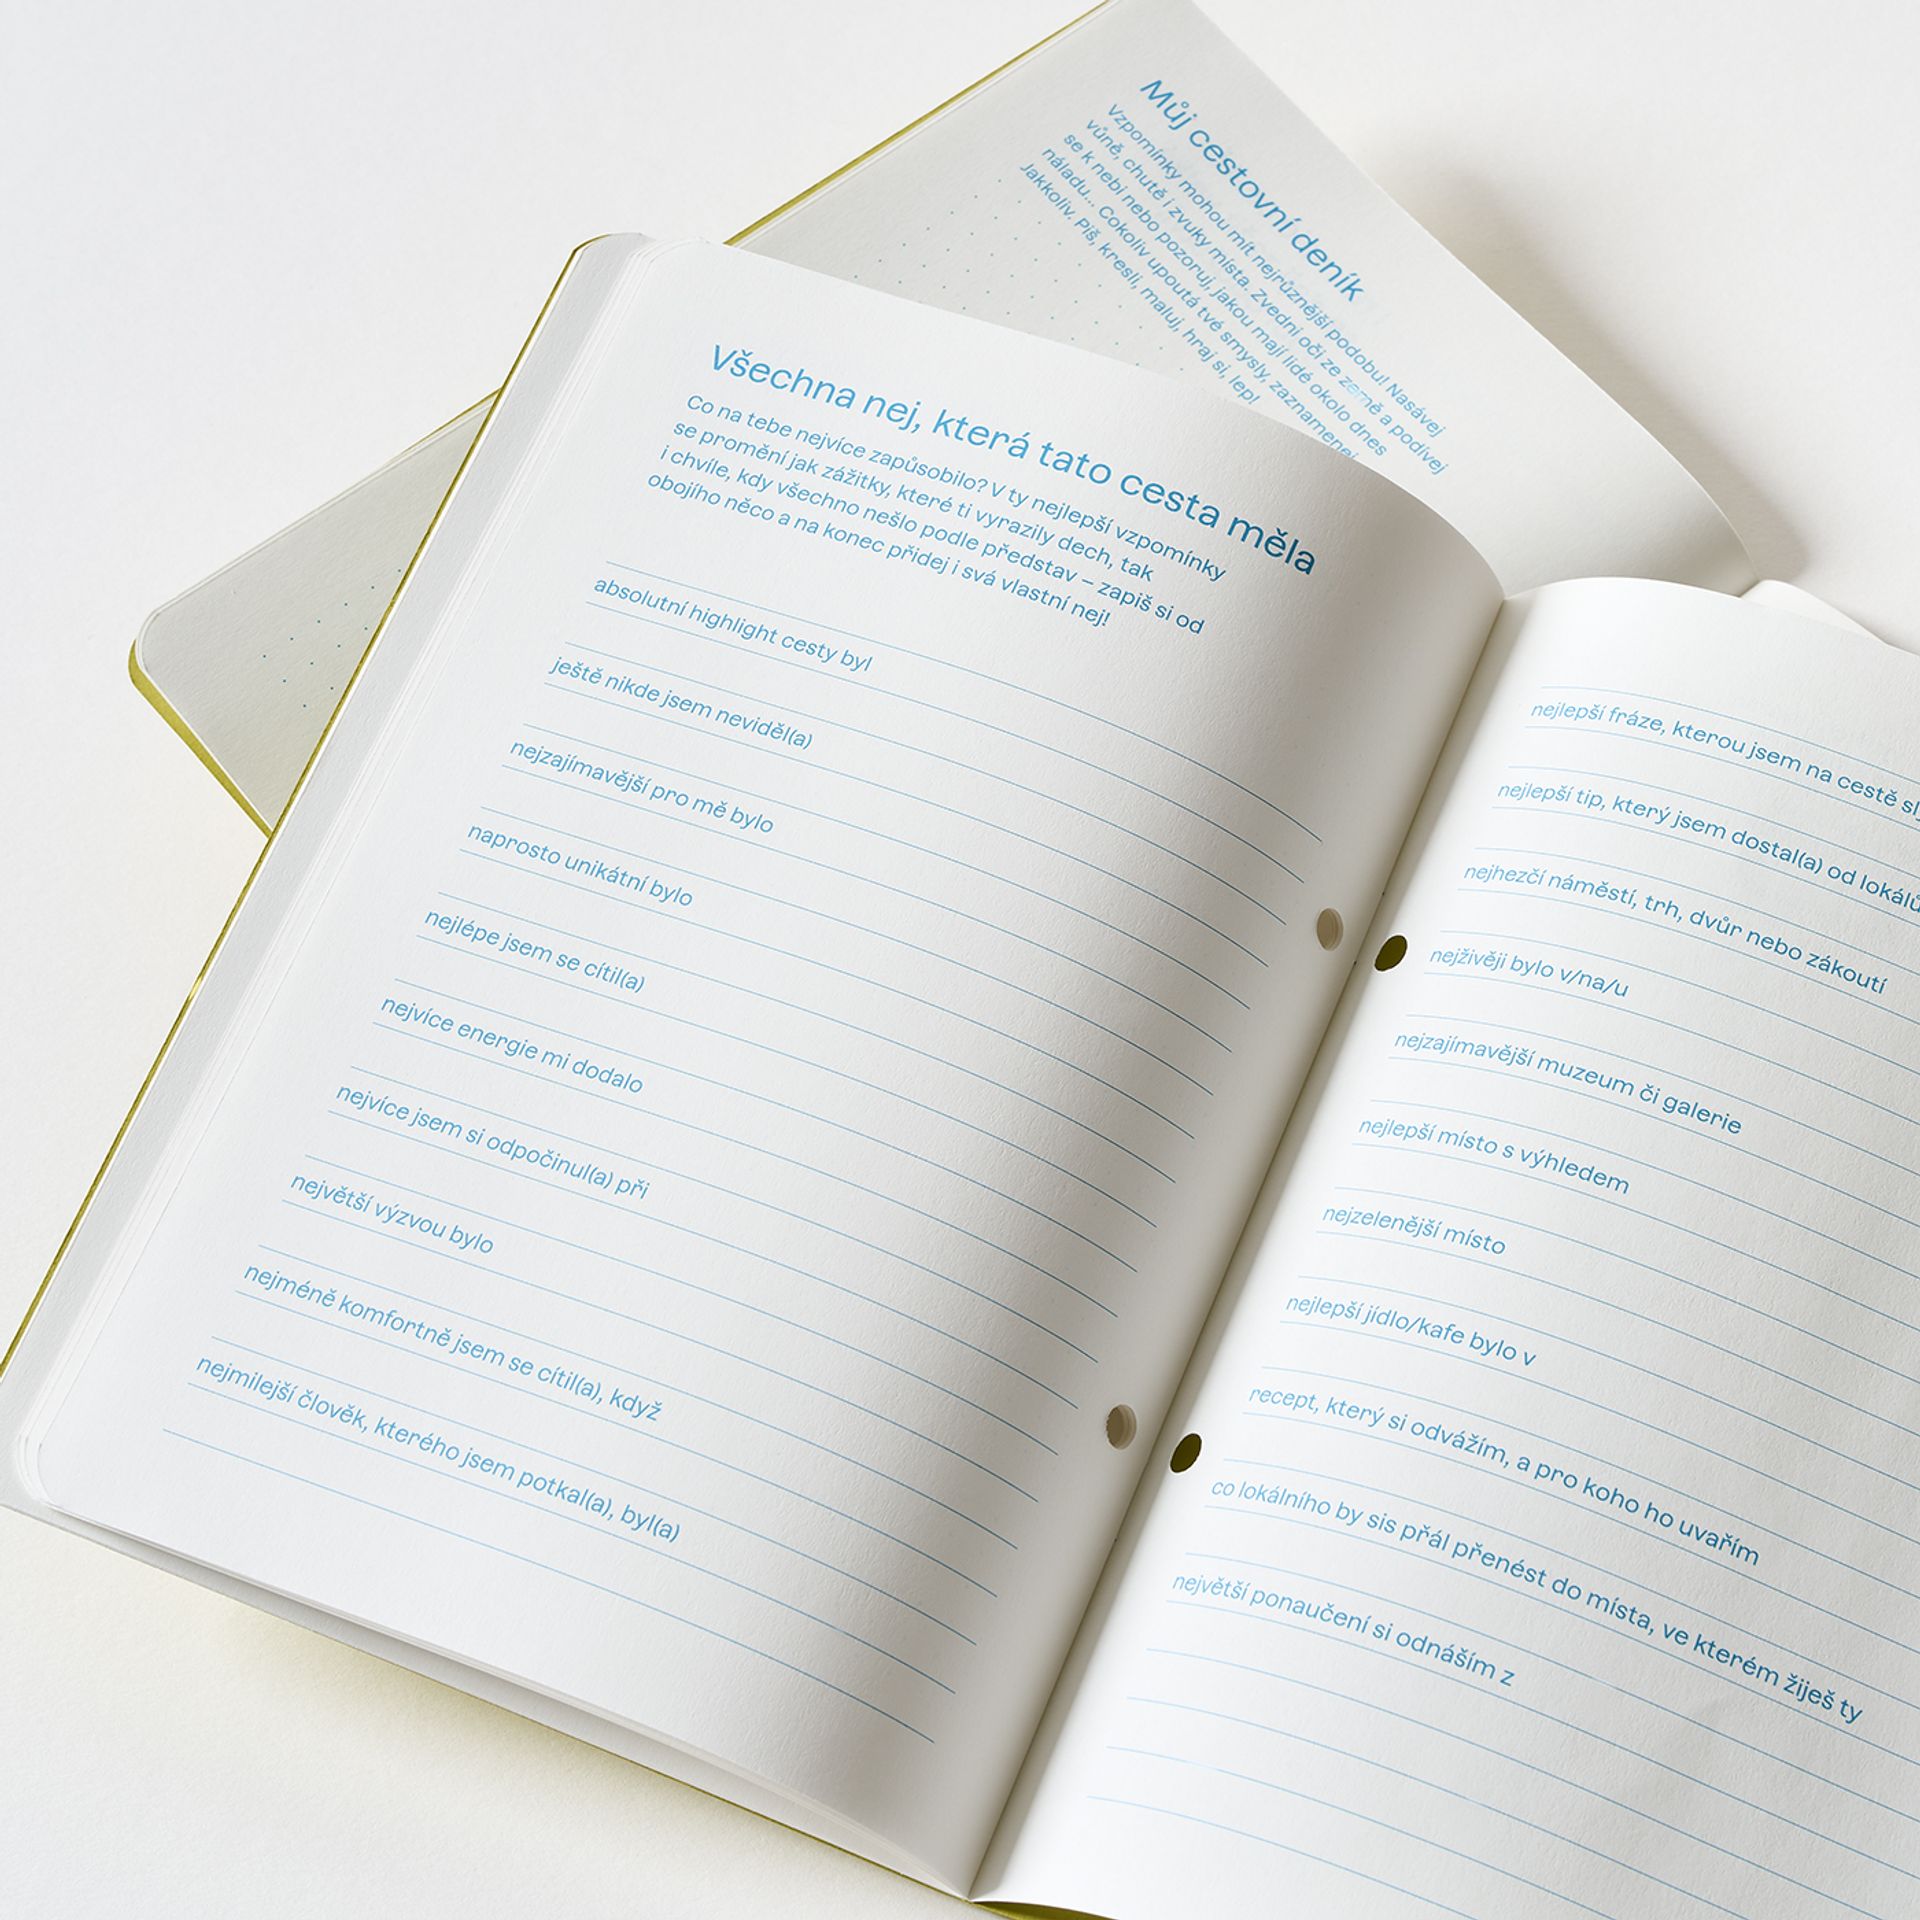 Můj cestovní deník
Vzpomínky mohou mít nejrůznější podobu! Nasávej
vůně, chutě i zvuky místa. Zvedni oči ze země a podívej
se k nebi nebo pozoruj, jakou mají lidé okolo dnes
náladu... Cokoliv upoutá tvé smysly, zaznamenej
Jakkoliv. Piš, kresli, maluj, hraj si, lep!
Všechna nej, která tato cesta měla
Co na tebe nejvíce zapůsobilo? V ty nejlepší vzpomínky
se promění jak zážitky, které ti vyrazily dech, tak
i chvíle, kdy všechno nešlo podle představ – zapiš si od
obojího něco a na konec přidej i svá vlastní nej!
absolutní highlight cesty byl
ještě nikde jsem neviděl(a)
nejzajímavější pro mě bylo
naprosto unikátní bylo
nejlépe jsem se cítil(a)
nejvíce energie mi dodalo
nejvíce jsem si odpočinul(a) při
největší výzvou bylo
nejméně komfortně jsem se cítil(a), když
nejmilejší člověk, kterého jsem potkal(a), byl(a)
nejlepší fráze, kterou jsem na cestě
nejlepší tip, který jsem dostal(a) od lokálů
nejhezčí náměstí, trh, dvůr nebo zákoutí
nejživěji bylo v/na/u
nejzajímavější muzeum či galerie
nejlepší místo s výhledem
nejzelenější místo
nejlepší jídlo/kafe bylo v
recept, který si odvážím, a pro koho ho uvařím
co lokálního by sis přál přenést do místa, ve kterém žiješ ty
největší ponaučení si odnáším z